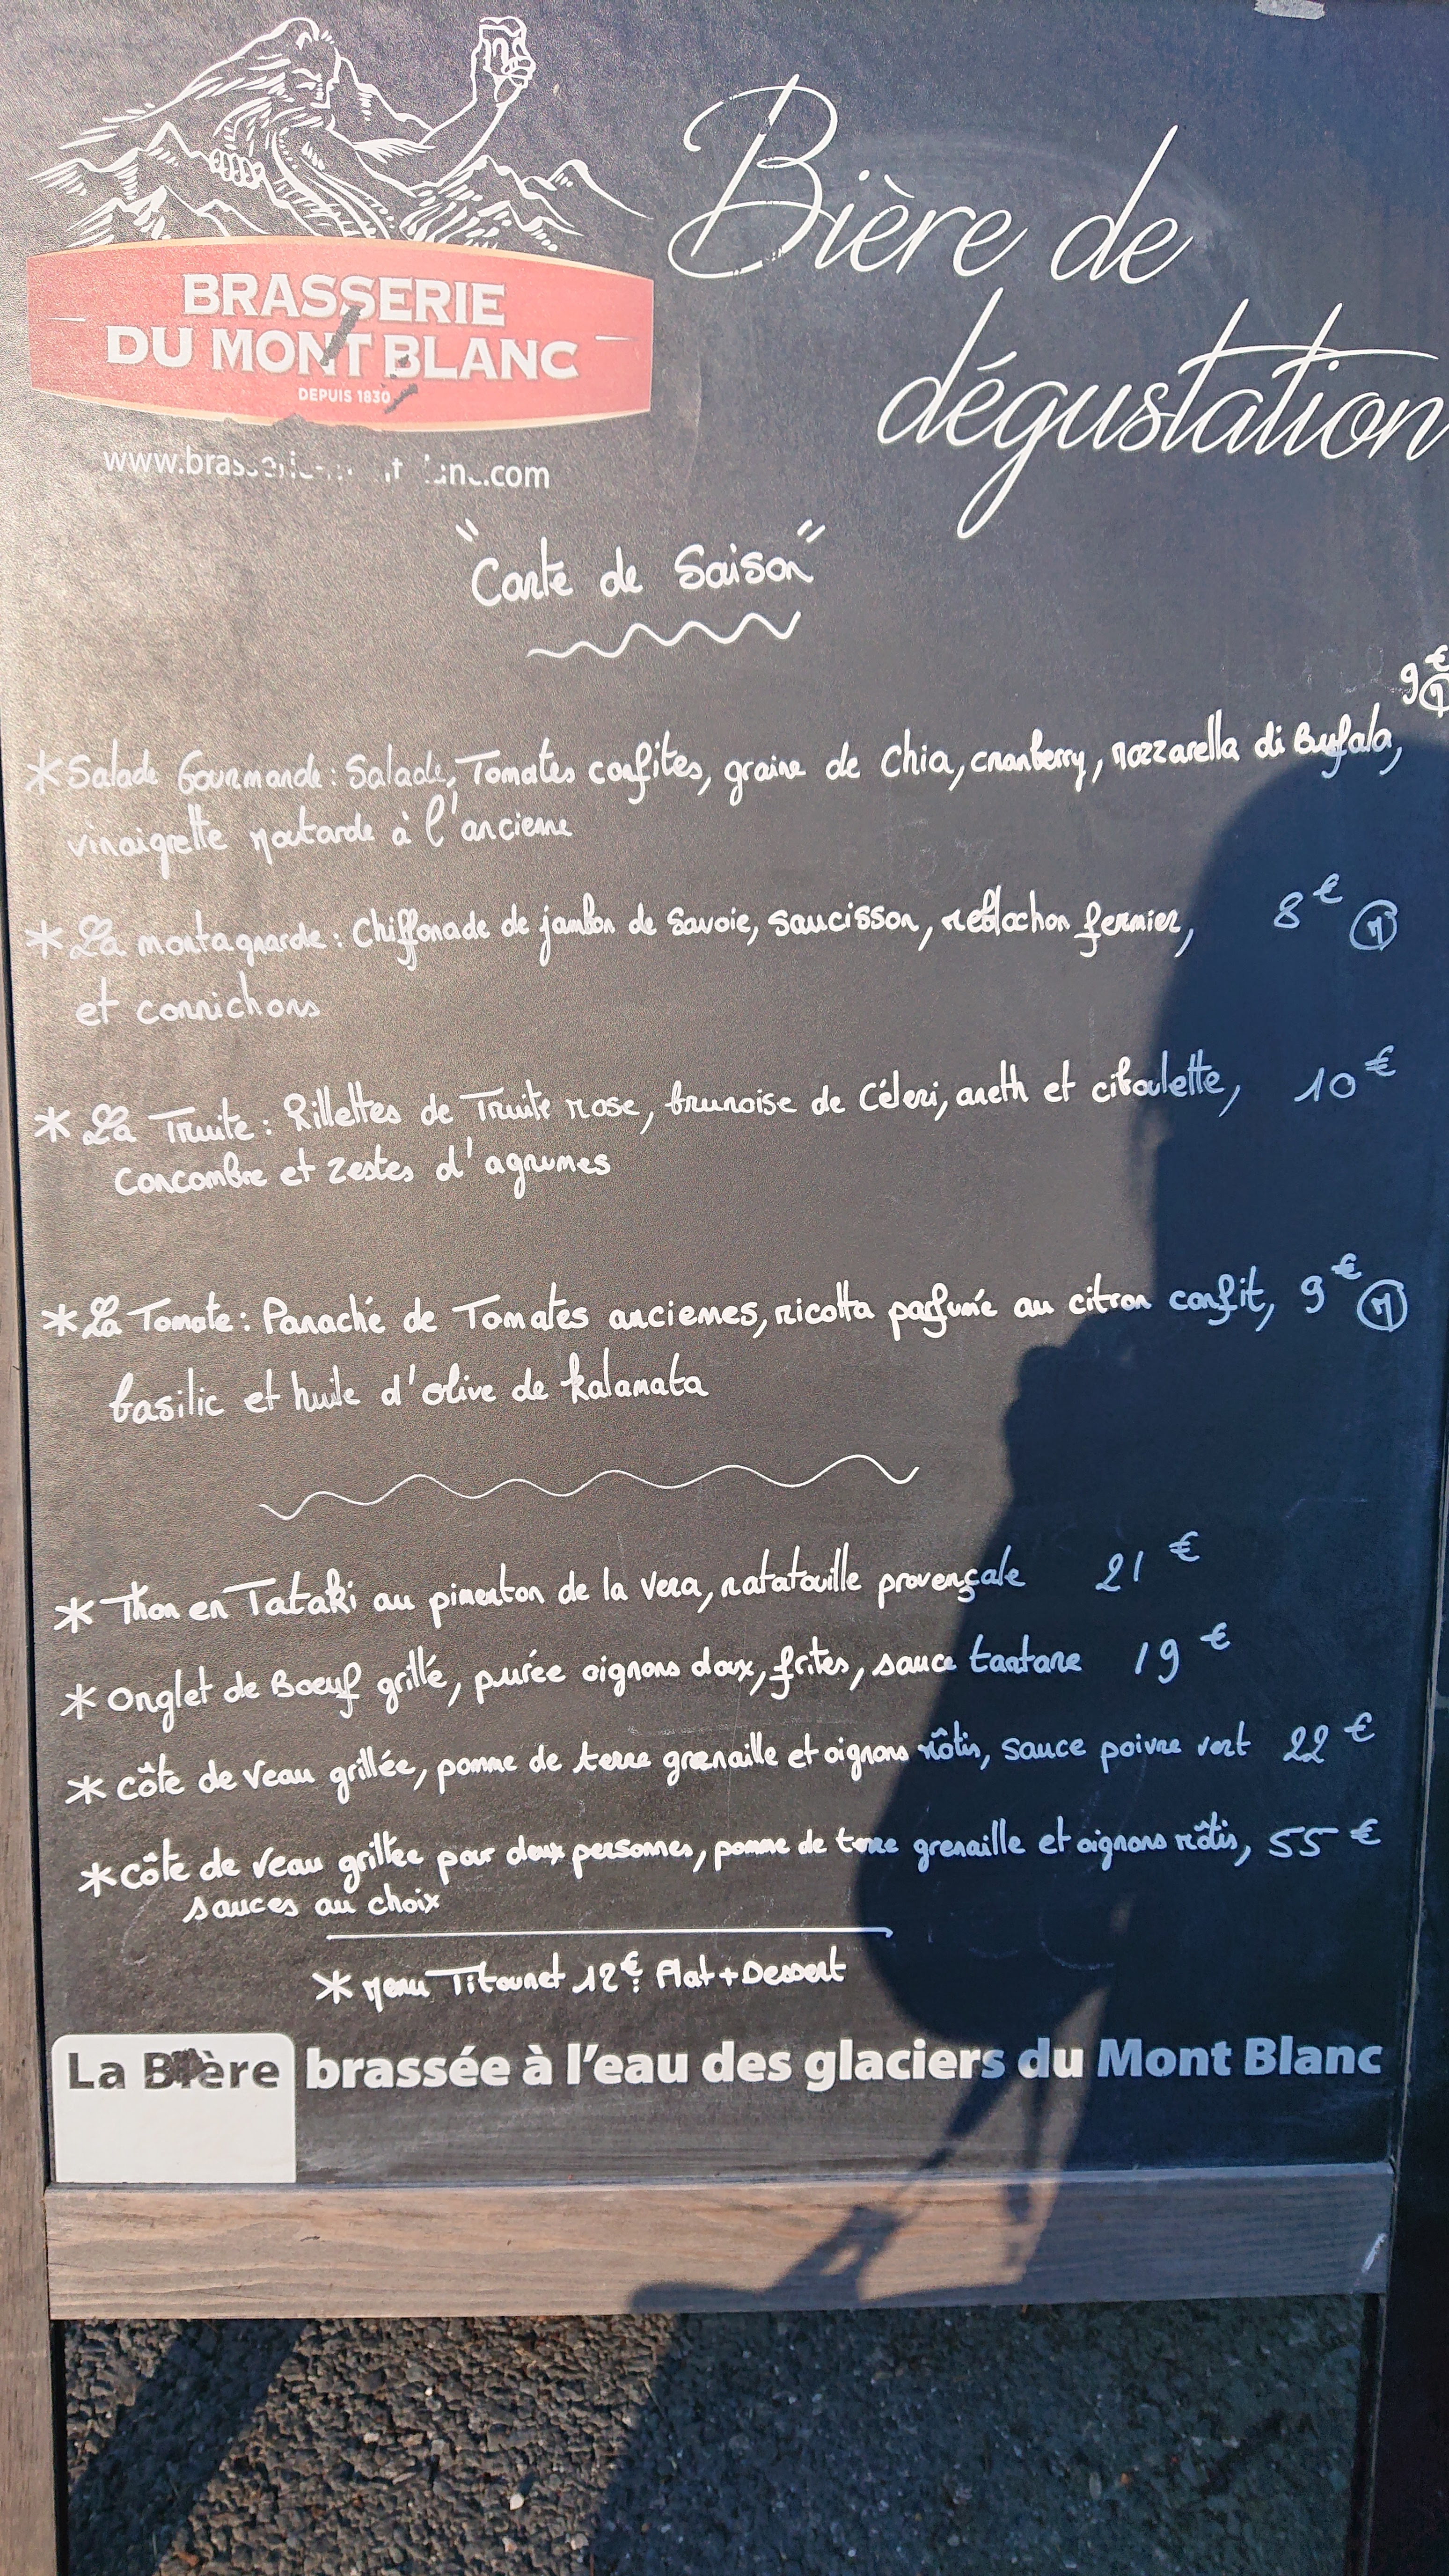 BRASSERIE
DU MONT BLANC
DEPUIS 1830
Bière de
dégustation
"Carte de Saison"
9€ Ⓜ
* Salade Gourmande : Salade, Tomates confites, graine de Chia, cranberry, mozzarella di Bufala,
vinaigrette moutarde à l'ancienne
* La montagnarde : Chiffonade de jambon de Savoie, saucisson, reblochon fermier, 8€ Ⓜ
et cornichons
* La Truite : Rillettes de Truite rose, brunoise de Céleri, aneth et ciboulette, 10€
Concombre et zestes d'agrumes
* La Tomate : Panaché de Tomates anciennes, ricotta parfumée au citron confit, 9€ Ⓜ
basilic et huile d'olive de Kalamata
* Thon en Tataki au pimenton de la Vera, ratatouille provençale 21€
* Onglet de Boeuf grillé, purée oignons doux, frites, sauce tartare 19€
* Côte de Veau grillée, pomme de terre grenaille et oignons rôtis, sauce poivre vert 22€
* Côte de Veau grillée pour deux personnes, pomme de terre grenaille et oignons rôtis, 55€
sauces au choix
* Menu Titounet 12€ : Plat + Dessert
La Bière brassée à l'eau des glaciers du Mont Blanc